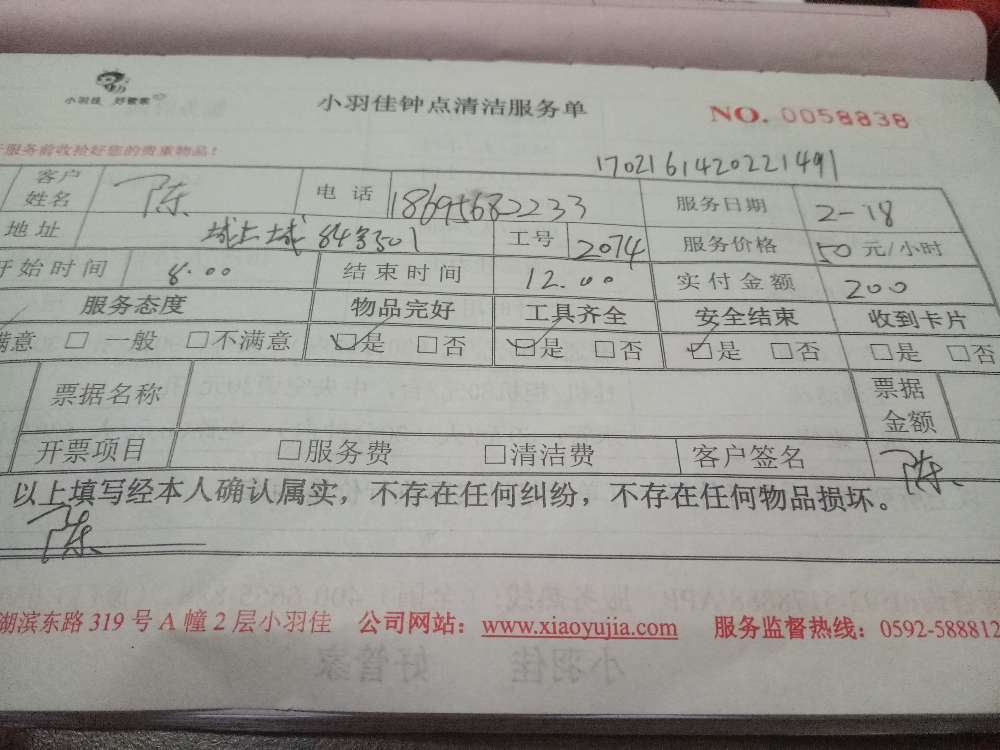 小羽佳 好管家
小羽佳钟点清洁服务单
NO. 0058838
服务前收拾好您的贵重物品!
1702161420221491
客户姓名 陈 电话 18695682233 服务日期 2-18
地址 域上域84号501 工号 2074 服务价格 50元/小时
开始时间 8:00 结束时间 12.00 实付金额 200
服务态度 物品完好 工具齐全 安全结束 收到卡片
满意 □ 一般 □不满意 ☑是 □否 ☑是 □否 ☑是 □否 □是 □否
票据名称 票据金额
开票项目 □服务费 □清洁费 客户签名 陈
以上填写经本人确认属实，不存在任何纠纷，不存在任何物品损坏。
陈
湖滨东路 319 号 A 幢 2 层小羽佳 公司网站：www.xiaoyujia.com 服务监督热线：0592-588812